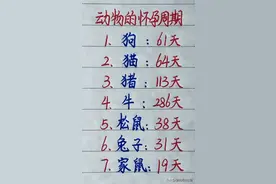 动物的怀孕周期
1. 狗：61天
2. 猫：64天
3. 猪：113天
4. 牛：286天
5. 松鼠：38天
6. 兔子：31天
7. 家鼠：19天